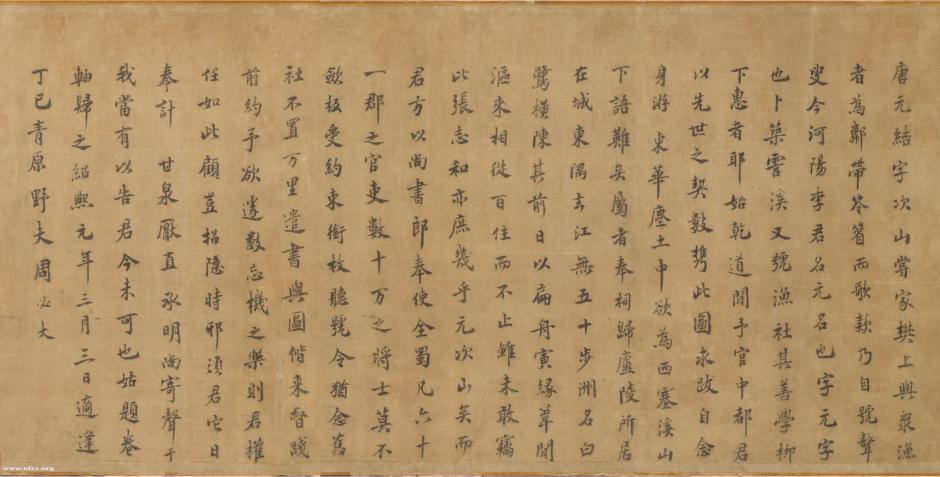 唐元結字次山嘗家樊上與衆漁
者為鄰帶笭箵而歌欸乃自號聱
叟今河陽李君名元名也字元字
也卜築霅溪又號漁社其善學柳
下惠者耶始乾道間予官中都君
以先世之契數携此圖求跋自念
身游東華塵土中欲為西塞溪山
下語難矣屬者奉祠歸廬陵所居
在城東隅去江無五十步洲名白
鷺橫陳其前日以扁舟寅緣葦間
漚來相從百住而不止雖未敢竊
比張志和亦庶幾乎元次山矣而
君方以尚書郎奉使全蜀凡六十
一郡之官吏數十万之將士莫不
斂板受約束銜枚聽號令猶念舊
社不置万里遣書與圖偕来督踐
前約予欲遽數忘機之樂則君權
任如此顧豈招隐時邪須君它日
奉計 甘泉厭直承明尚寄聲于
我當有以告君今未可也姑題卷
軸歸之紹熙元年三月三日適逢
丁巳青原野夫周必大
www.sfzx.org